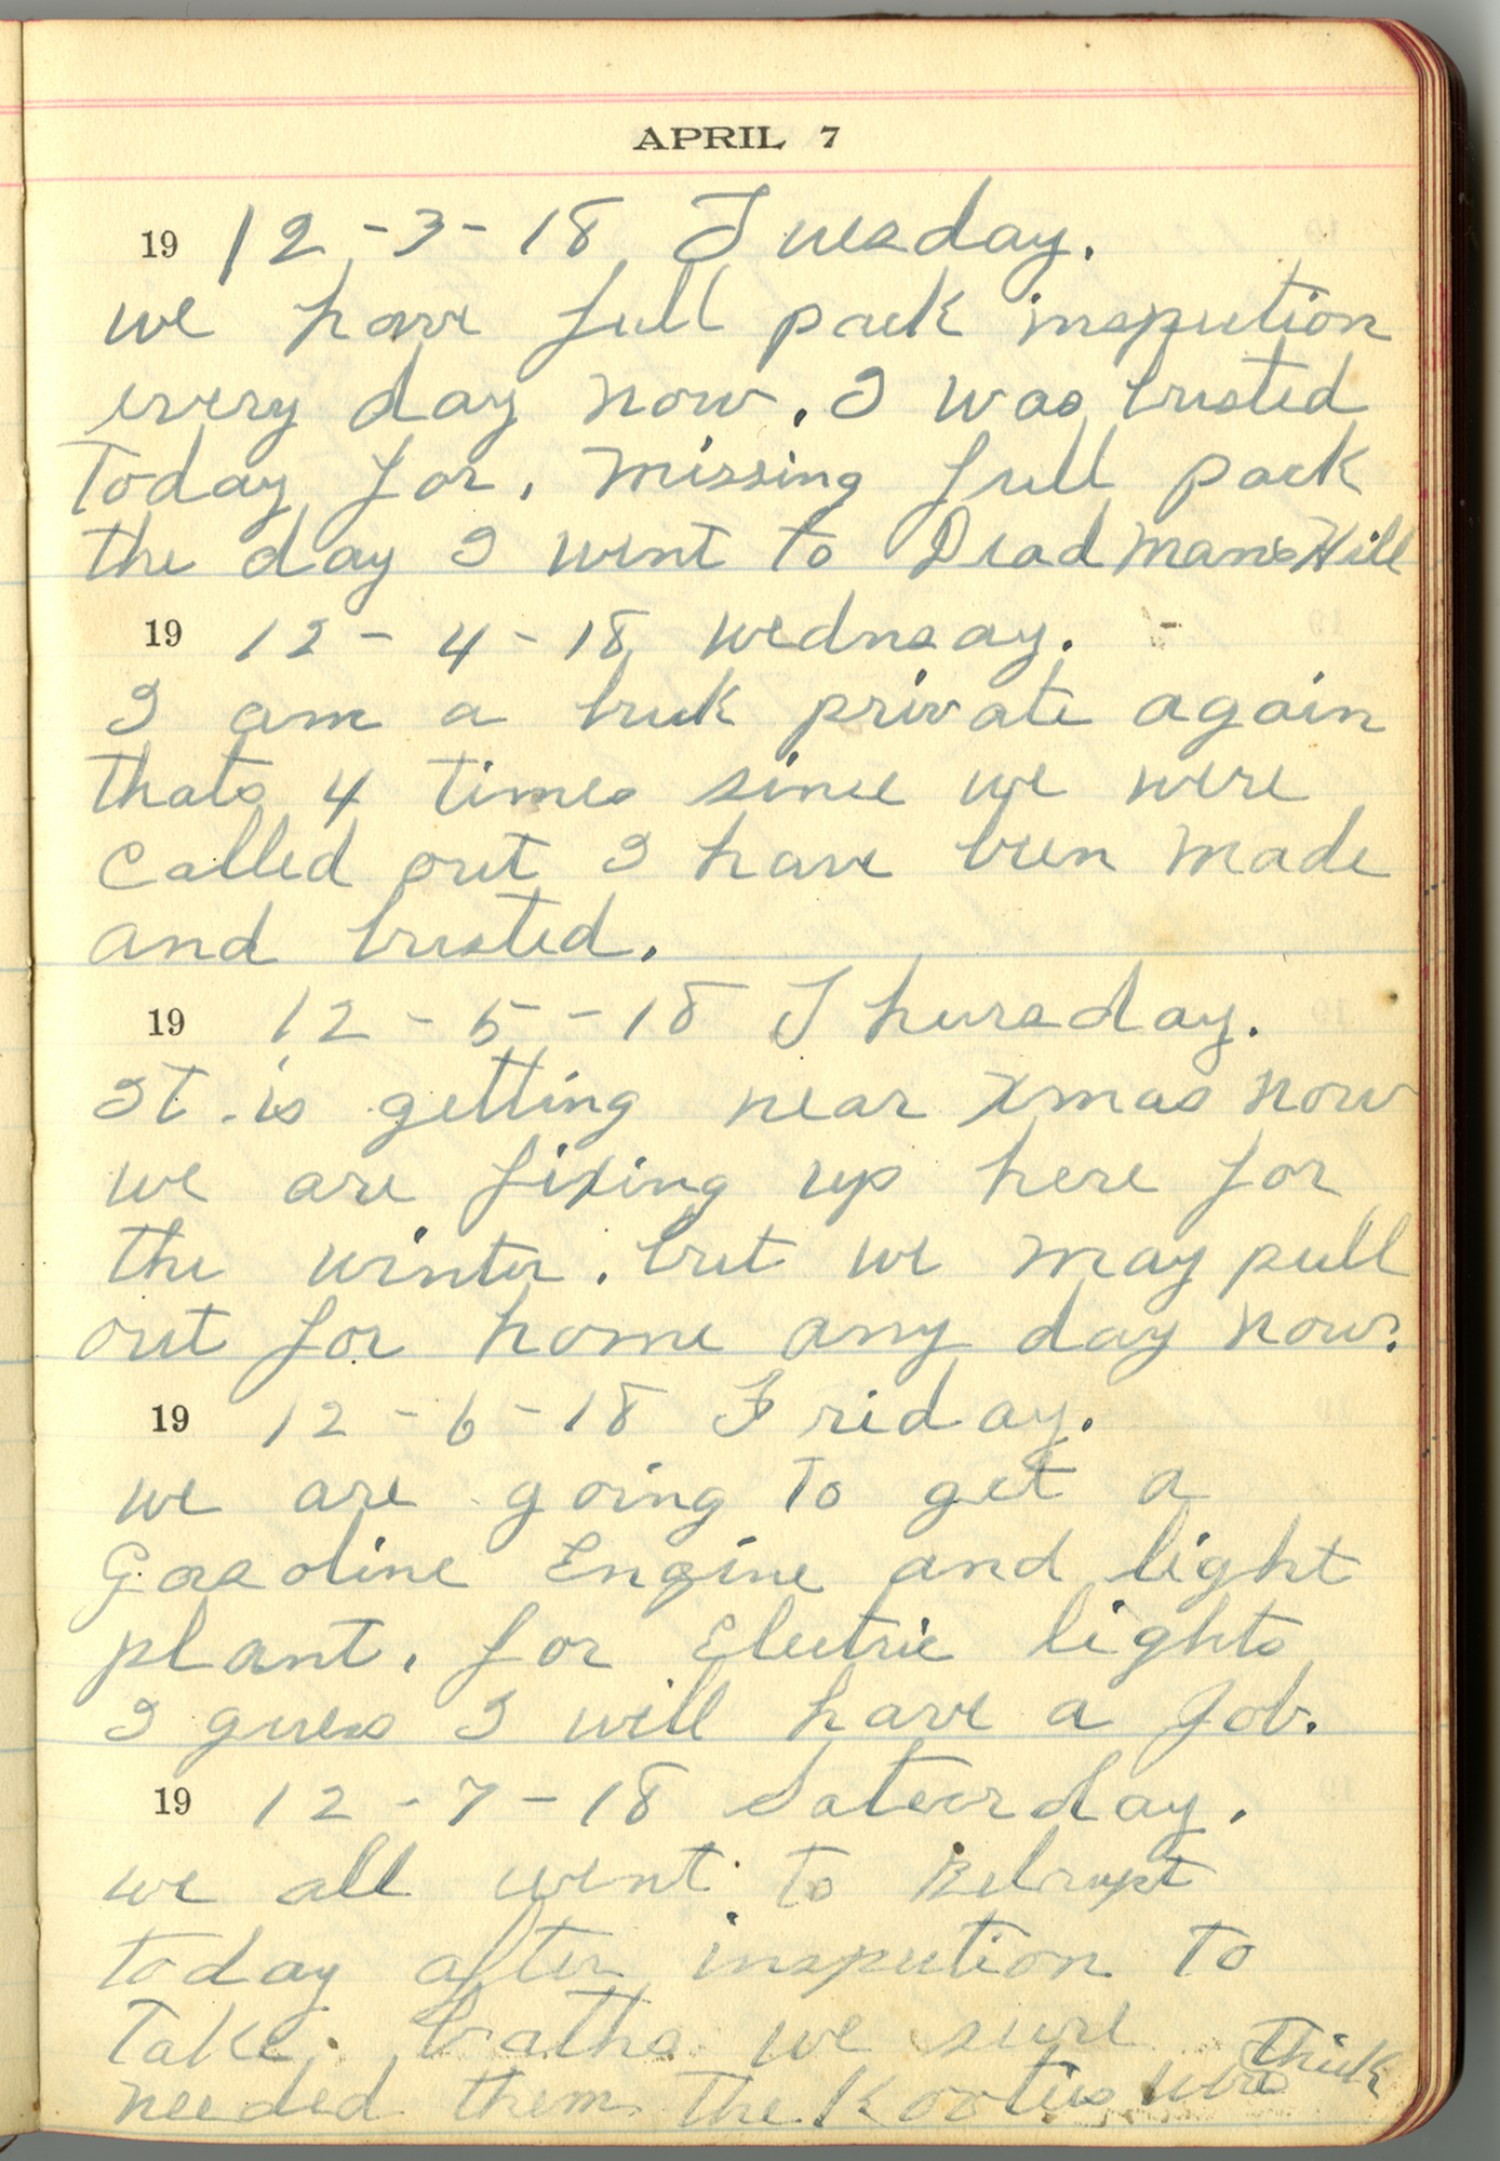 APRIL 7
19 12-3-18 Tuesday.
we have full pack inspection
every day now. I was busted
Today for. missing full pack
the day I went to Dead Mans Hill
19 12-4-18 Wednsay.
I am a buck private again
thats 4 times since we were
called out I have been made
and busted.
19 12-5-18 Thursday.
It is getting near Xmas now
we are fixing up here for
the winter. but we may pull
out for home any day now.
19 12-6-18 Friday.
we are going to get a
Gasoline Engine and light
plant. for Electric lights
I guess I will have a Job.
19 12-7-18 Saturday.
we all went to Belrupt
today after inspection to
Take baths we sure
needed them. The Kooties were thick